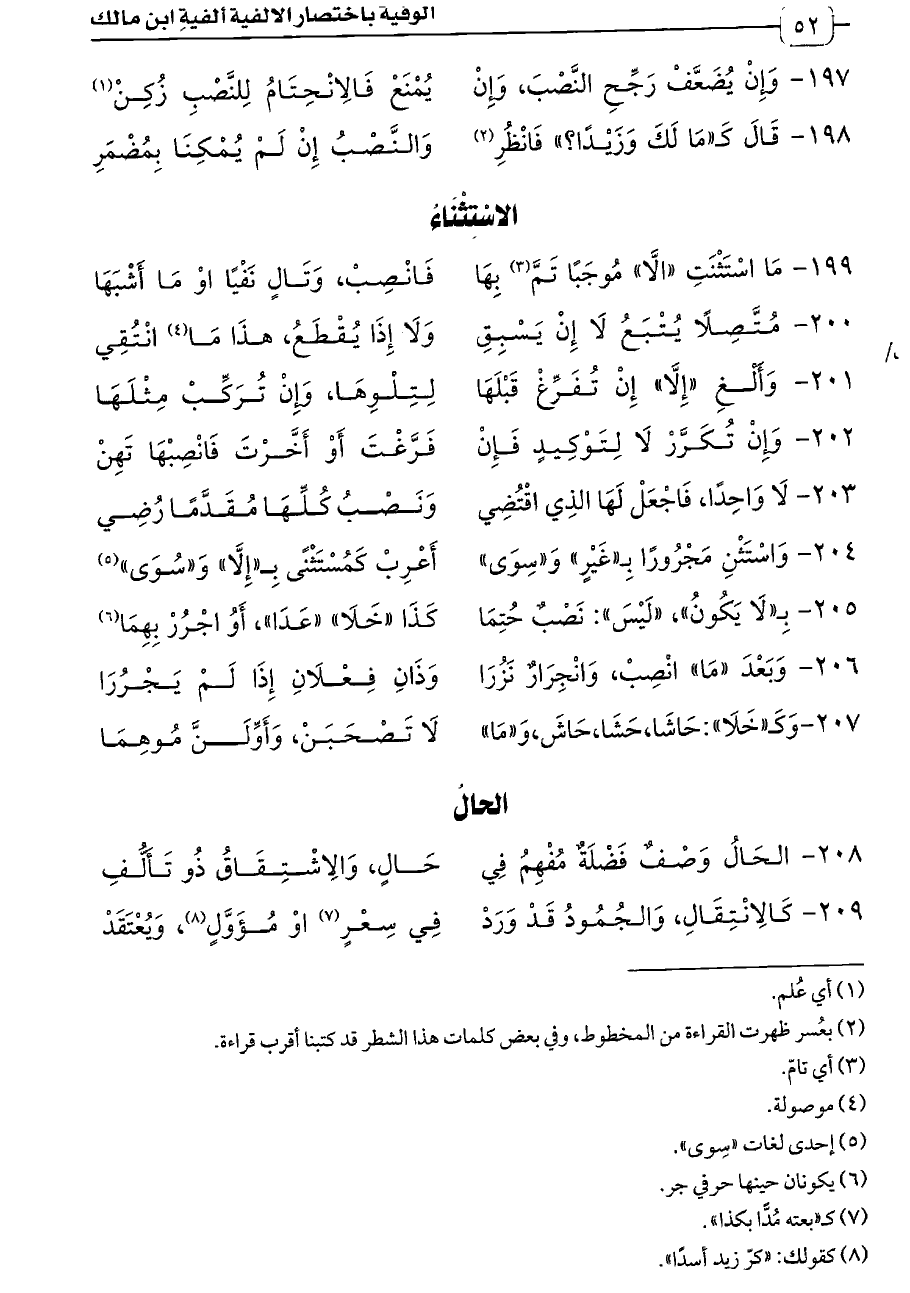 ٥٢ الوفية باختصار الالفية ألفيةِ ابن مالك
١٩٧- وَإِنْ يُضَعَّفْ رَجِّحِ النَّصْبَ، وَإِنْ يُمْنَعْ فَالِانْحِتَامُ لِلنَّصْبِ زُكِنْ(١)
١٩٨- قَالَ كَـ«مَا لَكَ وَزَيْدًا؟» فَانْظُرِ(٢) وَالنَّصْبُ إِنْ لَمْ يُمْكِنَا بِمُضْمَرِ
الاسْتِثْنَاءُ
١٩٩- مَا اسْتَثْنَتِ «الَّا» مُوجَبًا تَمَّ(٣) بِهَا فَانْصِبْ، وَتَالٍ نَفْيًا اوْ مَا أَشْبَهَا
٢٠٠- مُتَّصِلًا يُتْبَعُ لَا إِنْ يَسْبِقِ وَلَا إِذَا يُقْطَعُ، هذَا مَا(٤) انْتُقِي
٢٠١- وَأَلْغِ «إِلَّا» إِنْ تُفَرِّغْ قَبْلَهَا لِتِلْوِهَا، وَإِنْ تُرَكِّبْ مِثْلَهَا
٢٠٢- وَإِنْ تُكَرَّرْ لَا لِتَوْكِيدٍ فَإِنْ فَرَّغْتَ أَوْ أَخَّرْتَ فَانْصِبْهَا تَهِنْ
٢٠٣- لَا وَاحِدًا، فَاجْعَلْ لَهَا الذِي اقْتُضِي وَنَصْبُ كُلِّهَا مُقَدَّمًا رُضِي
٢٠٤- وَاسْتَثْنِ مَجْرُورًا بِـ«غَيْرٍ» وَ«سِوَى» أَعْرِبْ كَمُسْتَثْنًى بِـ«إِلَّا» وَ«سُوَى»(٥)
٢٠٥- بِـ«لَا يَكُونُ»، «لَيْسَ»: نَصْبٌ حُتِمَا كَذَا «خَلَا» «عَدَا»، أَوُ اجْرُرْ بِهِمَا(٦)
٢٠٦- وَبَعْدَ «مَا» انْصِبْ، وَانْجِرَارٌ نَزُرَا وَذَانِ فِعْلَانِ إِذَا لَمْ يَجْرُرَا
٢٠٧- وَكَـ«خَلَا»: حَاشَا، حَشَا، حَاشَ، وَ«مَا» لَا تَصْحَبَنْ، وَأَوِّلَنَّ مُوهِمَا
الحالُ
٢٠٨- الحَالُ وَصْفٌ فَضْلَةٌ مُفْهِمُ فِي حَالٍ، وَالِاشْتِقَاقُ ذُو تَأَلُّفِ
٢٠٩- كَالِانْتِقَالِ، وَالجُمُودُ قَدْ وَرَدْ فِي سِعْرٍ(٧) اوْ مُؤَوَّلٍ(٨)، وَيُعْتَقَدْ
(١) أي عُلم.
(٢) بعُسر ظهرت القراءة من المخطوط، وفي بعض كلمات هذا الشطر قد كتبنا أقرب قراءة.
(٣) أي تامّ.
(٤) موصولة.
(٥) إحدى لغات «سِوى».
(٦) يكونان حينها حرفي جر.
(٧) كـ«بعته مُدًّا بكذا».
(٨) كقولك: «كرّ زيد أسدًا».